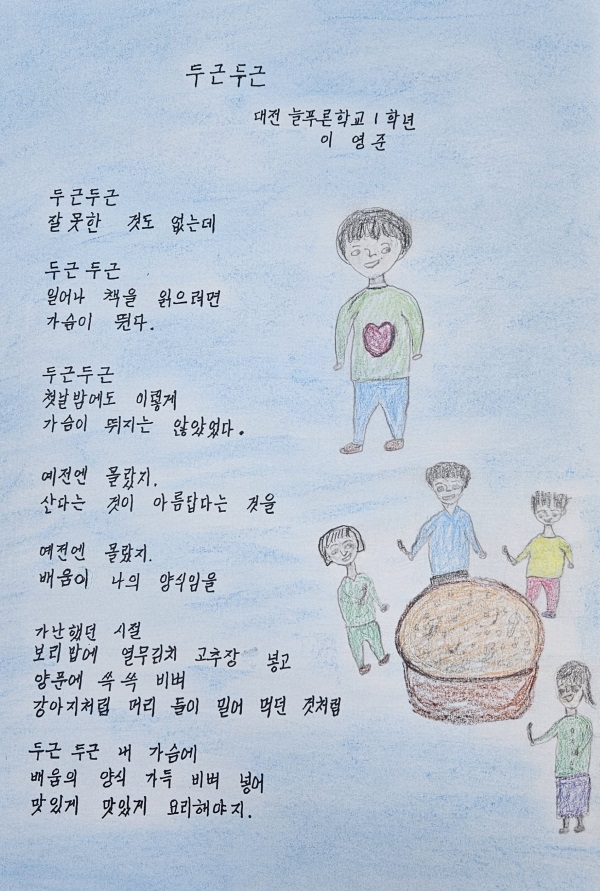 두근두근
대전 늘푸른학교 1학년
이 영준
두근두근
잘못한 것도 없는데
두근두근
일어나 책을 읽으려면
가슴이 뛴다.
두근두근
첫날밤에도 이렇게
가슴이 뛰지는 않았었다.
예전엔 몰랐지.
산다는 것이 아름답다는 것을
예전엔 몰랐지.
배움이 나의 양식임을
가난했던 시절
보리밥에 열무김치 고추장 넣고
양푼에 쓱쓱 비벼
강아지처럼 머리 들이 밀어 먹던 것처럼
두근 두근 내 가슴에
배움의 양식 가득 비벼 넣어
맛있게 맛있게 요리해야지.